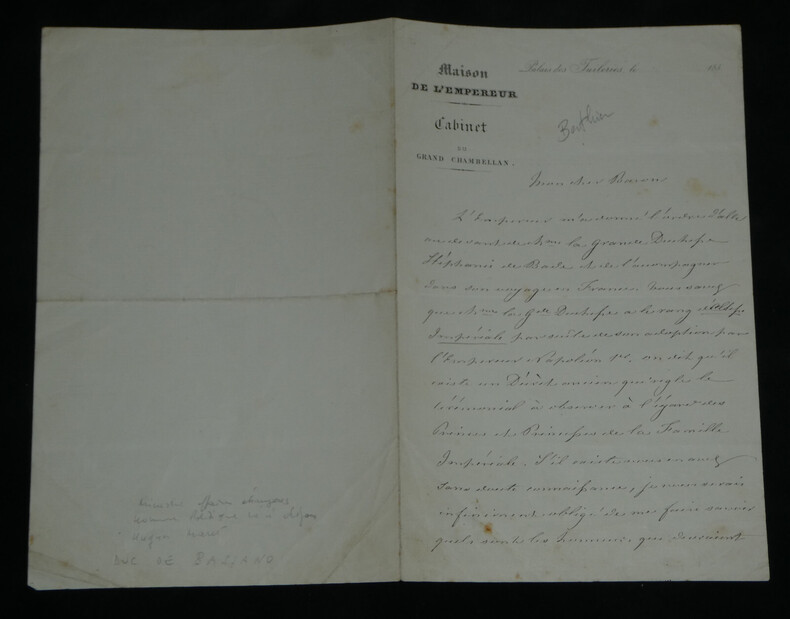 Maison
DE L'EMPEREUR
Cabinet
DU
GRAND CHAMBELLAN.
Palais des Tuileries le 185
Berthier
Mon cher Baron
L'Empereur m'a donné l'ordre d'aller
au devant de Mme la Grande Duchesse
Stéphanie de Bade et de l'accompagner
dans son voyage en France. Vous savez
que Mme la Gde Duchesse a le rang d'Altesse
Impériale par suite de son adoption par
l'Empereur Napoléon 1er. on dit qu'il
existe un Décret ancien qui règle le
cérémonial à observer à l'égard des
Princes et Princesses de la Famille
Impériale. S'il existe vous en avez
sans doute connaissance, je vous serais
infiniment obligé de me faire savoir
quels sont les honneurs qui devraient
DUC DE BASSANO